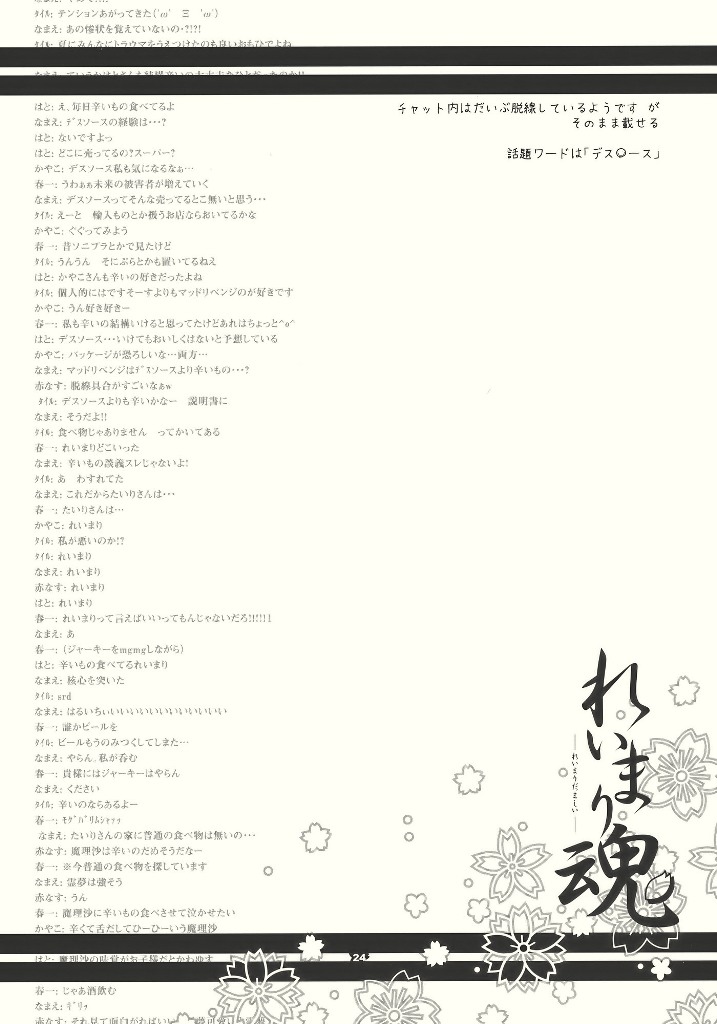 ﾀｲﾙ: テンションあがってきた('ω' Ξ 'ω')
なまえ: あの惨状を覚えていないの・?!?!
ﾀｲﾙ: 夏にみんなにトラウマをうえつけたのも良いおもひでよね
はと: え、毎日辛いもの食べてるよ
なまえ: ﾃﾞｽソースの経験は・・・?
はと: ないですよっ
はと: どこに売ってるの?スーパー?
かやこ: デスソース私も気になるなぁ…
春一: うわぁぁ未来の被害者が増えていく
なまえ: デスソースってそんな売ってるとこ無いと思う・・・
ﾀｲﾙ: えーと　輸入ものとか扱うお店ならおいてるかな
かやこ: ぐぐってみよう
春一: 昔ソニプラとかで見たけど
ﾀｲﾙ: うんうん　そにぷらとかも置いてるねえ
はと: かやこさんも辛いの好きだったよね
ﾀｲﾙ: 個人的にはですそーすよりもマッドリベンジのが好きです
かやこ: うん好き好きー
春一: 私も辛いの結構いけると思ってたけどあれはちょっと^o^
はと: デスソース・・・いけてもおいしくはないと予想している
かやこ: パッケージが恐ろしいな…両方…
なまえ: マッドリベンジはﾃﾞｽソースより辛いもの・・・?
赤なす: 脱線具合がすごいなぁw
ﾀｲﾙ: デスソースよりも辛いかなー　説明書に
なまえ: そうだよ!!
ﾀｲﾙ: 食べ物じゃありません　ってかいてある
春一: れいまりどこいった
なまえ: 辛いもの談義スレじゃないよ!
ﾀｲﾙ: あ　わすれてた
なまえ: これだからたいりさんは・・・
春一: たいりさんは…
かやこ: れいまり
ﾀｲﾙ: 私が悪いのか!?
ﾀｲﾙ: れいまり
なまえ: れいまり
赤なす: れいまり
はと: れいまり
春一: れいまりって言えばいいってもんじゃないだろ!!!!!1
なまえ: あ
春一: (ジャーキーをmgmgしながら)
はと: 辛いもの食べてるれいまり
なまえ: 核心を突いた
ﾀｲﾙ: srd
なまえ: はるいちぃいいいいいいいいいいいいい
春一: 誰かビールを
ﾀｲﾙ: ビールもうのみつくしてしまた…
なまえ: やらん、私が呑む
春一: 貴様にはジャーキーはやらん
なまえ: ください
ﾀｲﾙ: 辛いのならあるよー
春一: ﾓｸﾞﾊﾞﾘﾑｼｬｯｯ
なまえ: たいりさんの家に普通の食べ物は無いの・・・
赤なす: 魔理沙は辛いのだめそうだなー
春一: ※今普通の食べ物を探しています
なまえ: 霊夢は強そう
赤なす: うん
春一: 魔理沙に辛いもの食べさせて泣かせたい
かやこ: 辛くて舌だしてひーひーいう魔理沙
はと: 魔理沙の味覚がお子様だとかわゆす
春一: じゃあ酒飲む
なまえ: ｷﾞﾘｯ
チャット内はだいぶ脱線しているようです　が
そのまま載せる
話題ワードは「デス○ース」
れいまり魂
―れいまりだましい―
24